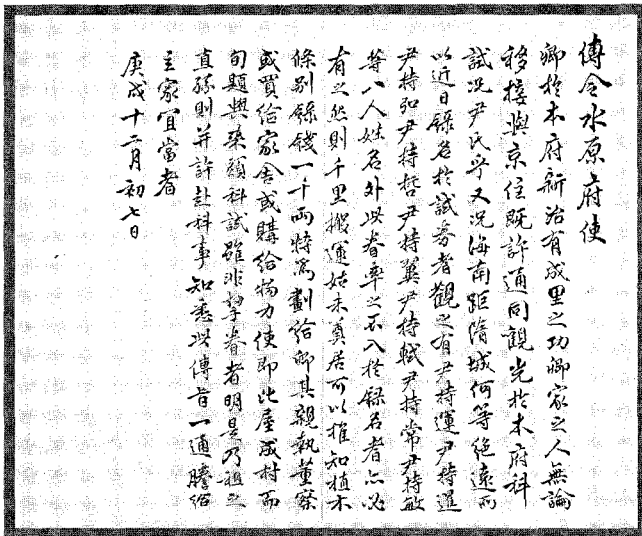 傳令水原府使
卿於本府新治有成里之功卿家之人無論
移接與京住既許通同觀光於本府科
試况尹氏乎又况海南距隋城何等絶遠而
以近日錄名於試券者觀之有尹持運尹持選
尹持弘尹持哲尹持翼尹持軾尹持常尹持敏
等八人姓名外此眷率之不入於錄名者亦必
有之然則千里搬運姑未奠居可以推知植木
條別餘錢一千兩特爲劃給卿其親執董察
或買給家舍或購給物力使即此屋成村而
旬題與藥頭科試雖非挈眷者明是乃祖之
直孫則并許赴科事知悉此傳旨一通謄給
主家宜當者
庚戌十二月初七日